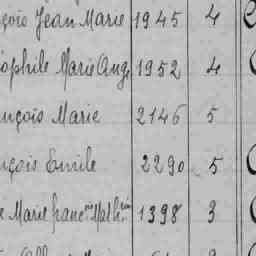 çois Jean Marie 1945 4
ophile Marie Ang 1952 4
nçois Marie 2146 5
nçois Emile 2290 5
e Marie franc^ois Math^rin 1398 3